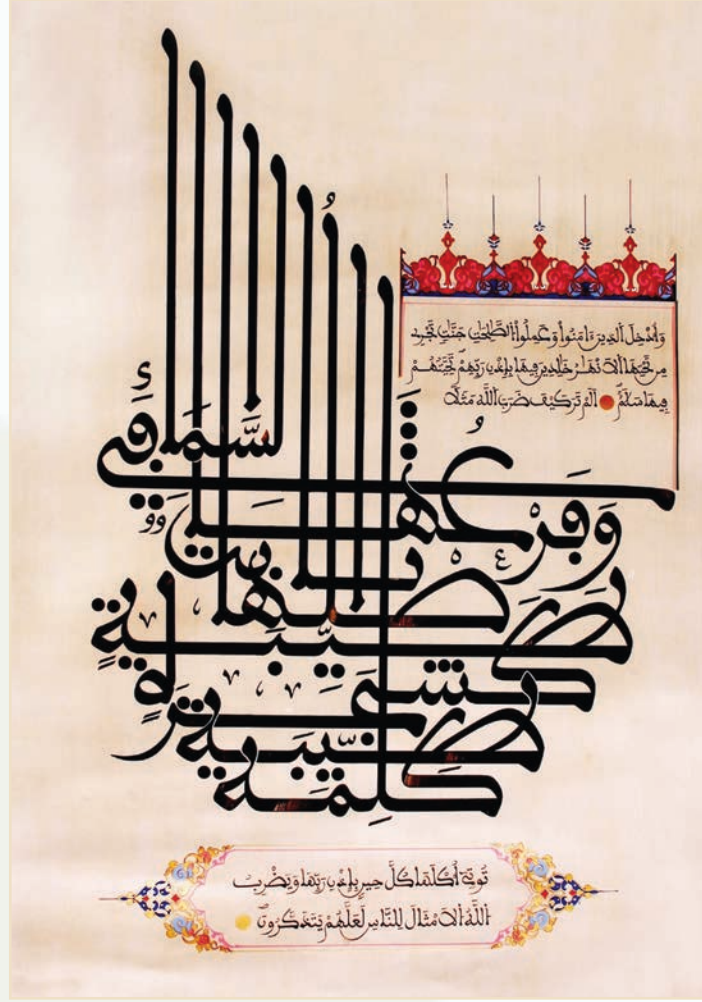 وَأُدْخِلَ الَّذِينَ ءَامَنُوا وَعَمِلُوا الصَّٰلِحَٰتِ جَنَّٰتٍ تَجْرِي
مِن تَحْتِهَا الْأَنْهَٰرُ خَٰلِدِينَ فِيهَا بِإِذْنِ رَبِّهِمْ تَحِيَّتُهُمْ
فِيهَا سَلَٰمٌ أَلَمْ تَرَ كَيْفَ ضَرَبَ اللَّهُ مَثَلًا
كَلِمَةً طَيِّبَةً
كَشَجَرَةٍ
طَيِّبَةٍ
أَصْلُهَا ثَابِتٌ
وَفَرْعُهَا
فِي السَّمَاءِ
تُؤْتِي أُكُلَهَا كُلَّ حِينٍ بِإِذْنِ رَبِّهَا وَيَضْرِبُ
اللَّهُ الْأَمْثَالَ لِلنَّاسِ لَعَلَّهُمْ يَتَذَكَّرُونَ